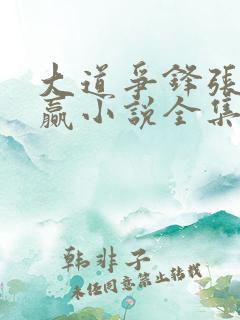 大道争锋张
赢小说全集
韩非子
未经同意禁止转载